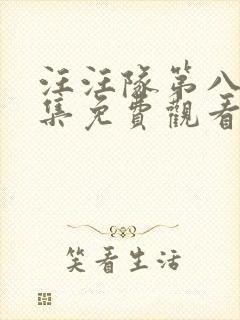 汪汪隊第八
集免費觀看
笑看生活